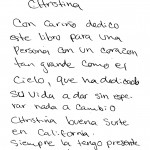 Christina
Con Cariño dedico
este libro para una
Persona con un corazon
tan grande como el
Cielo, que ha dedicado
su vida a dar sin espe-
rar nada a Cambio
Christina buena Suerte
en California.
Siempre la tengo presente